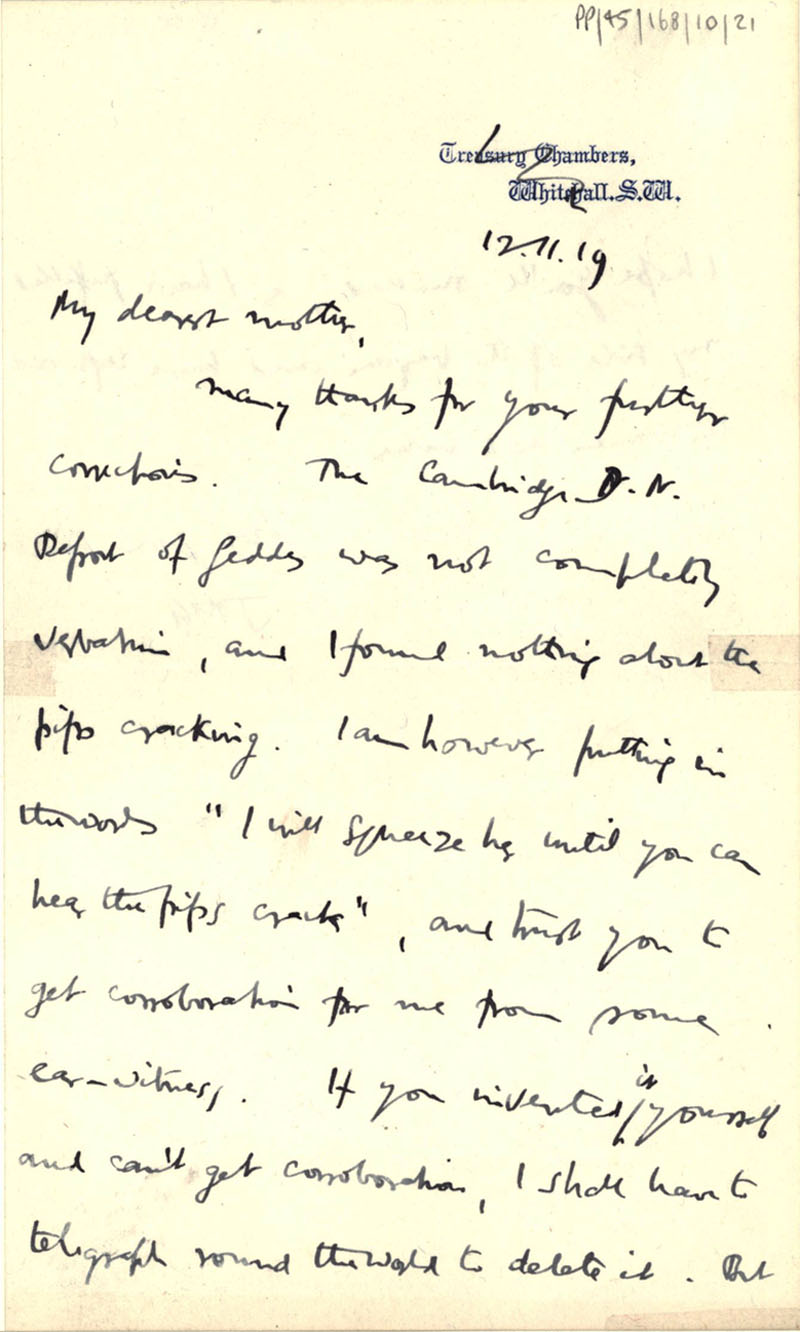 PP/45/168/10/21
Treasury Chambers,
Whitehall. S.W.
12.11.19
My dearest mother,
Many thanks for your further
corrections. The Cambridge D. N.
Report of Geddes was not completely
verbatim, and I found nothing about the
pips cracking. I am however putting in
the words "I will squeeze her until you can
hear the pips crack", and trust you to
get corroboration for me from some
ear-witness. If you invented it yourself
and can't get corroboration, I shall have to
telegraph round the world to delete it. But